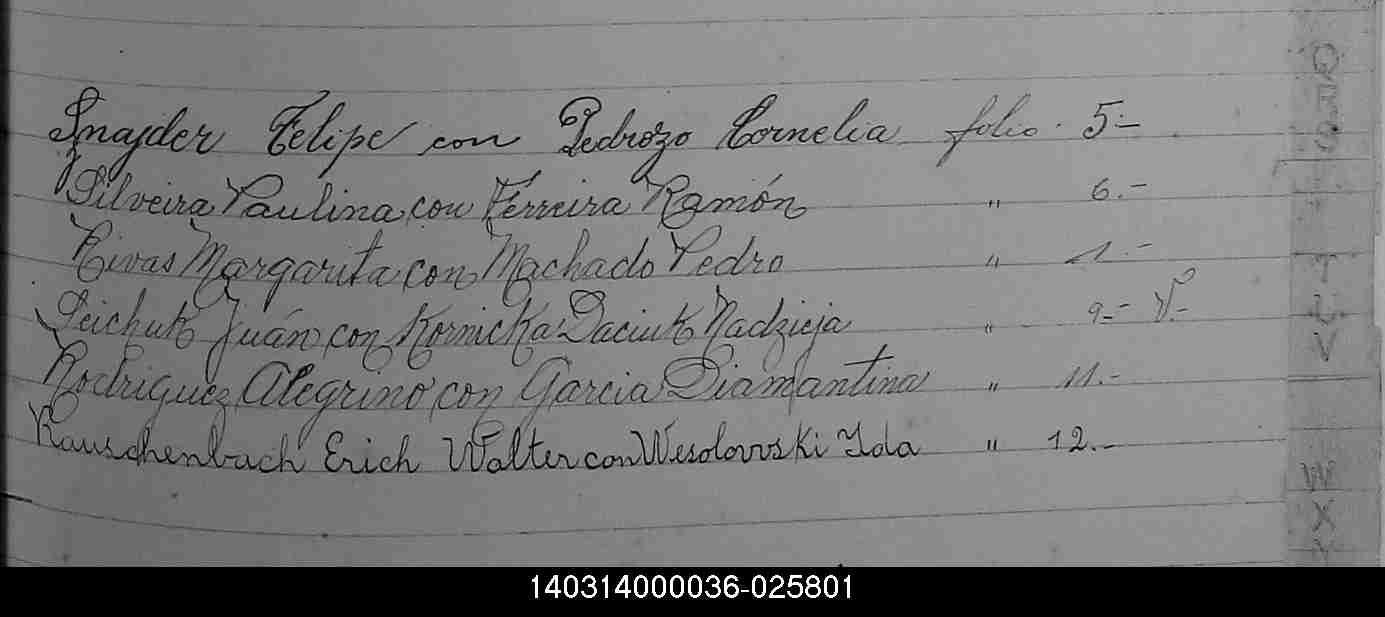 Snajder Felipe con Pedrozo Cornelia folio. 5.-
Silveira Paulina con Ferreira Ramón " 6.-
Rivas Margarita con Machado Pedro " 1.-
Seichuk Juán con Kornicka Daciuk Nadzieja " 9.- V.-
Rodriguez Alegrino con Garcia Diamantina " 11.-
Rauschenbach Erich Walter con Wesolowski Ida " 12.-
Q
R
S
T
U
V
W
X
Y
140314000036-025801